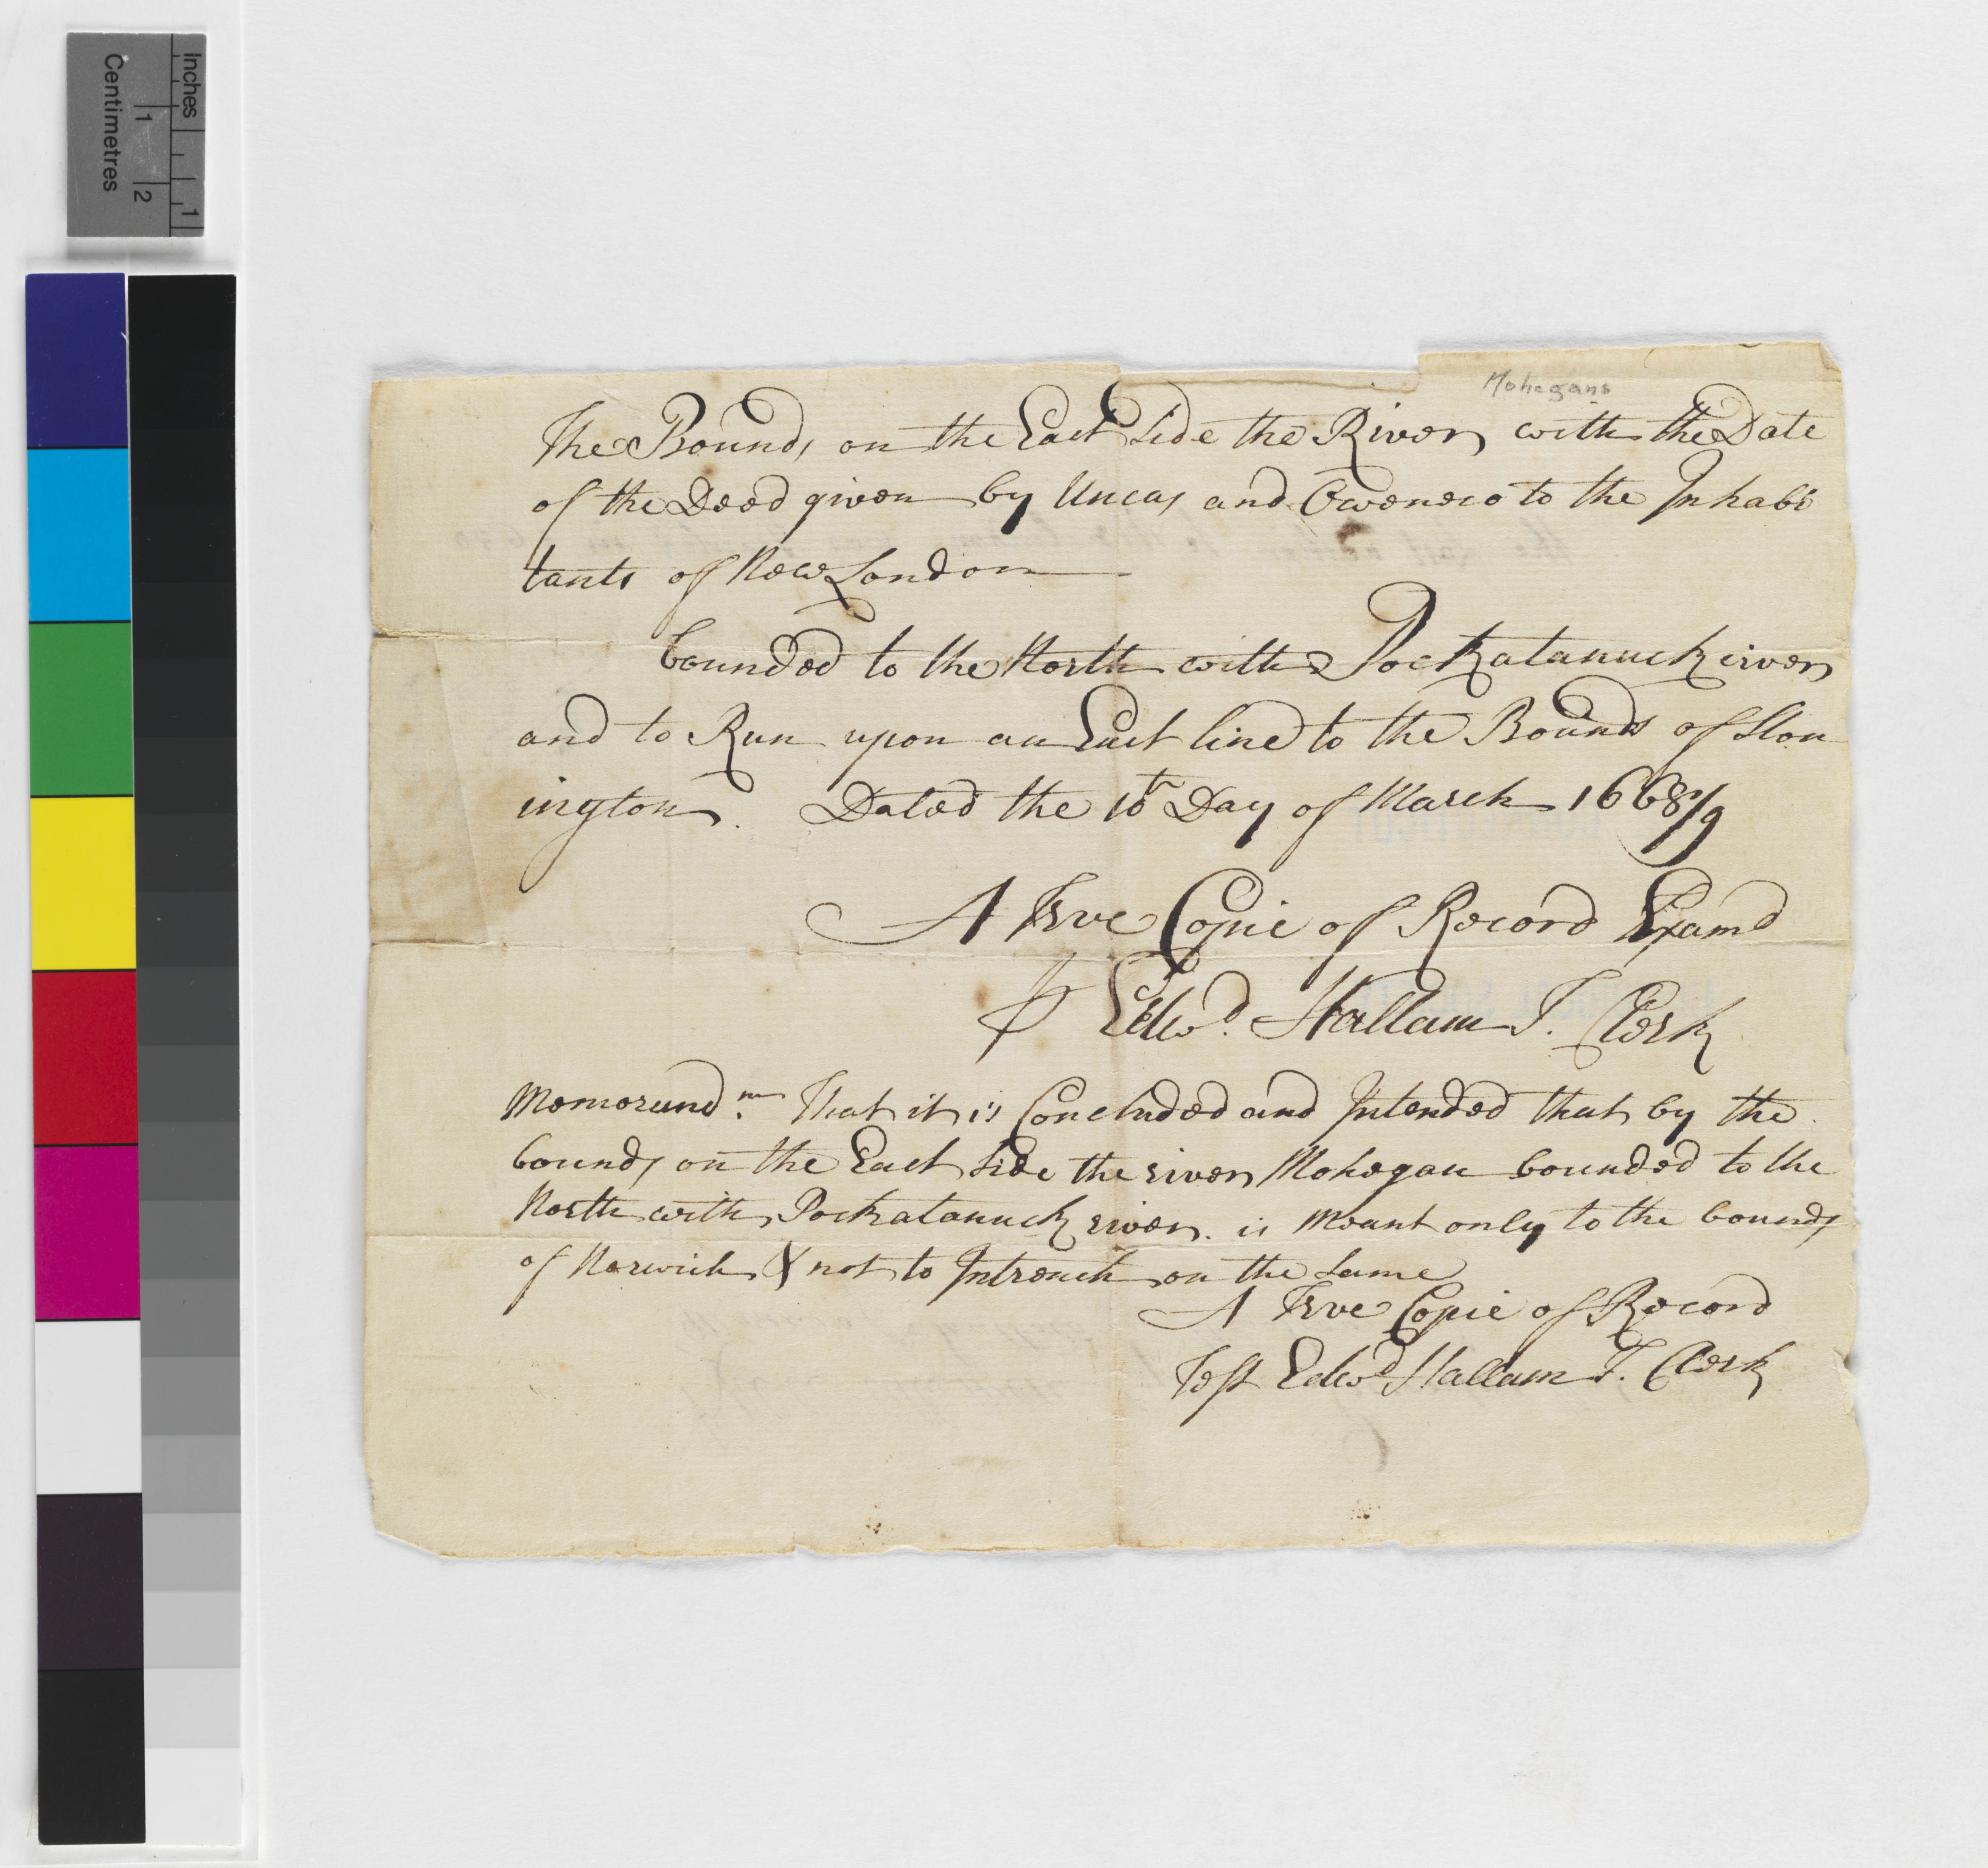 Inches
1
Centimetres
1
2
Mohegans
The Bounds on the East Side the River with the Date
of the Deed given by Uncas and Oweneco to the Inhabi
tants of New London
bounded to the North with Pockatanuck river
and to Run upon an East line to the Bounds of Ston
ington. Dated the 10th Day of March 1668/9
A True Copie of Record Examd
⅌ Edwd. Hallam T. Clerk
Memorandm. That it is Concluded and Intended that by the
bounds on the East Side the river Mohegan bounded to the
North with Pockatanuck river. is Meant only to the bounds
of Norwich & not to Intrench on the Same
A True Copie of Record
Test Edwd Hallam T. Clerk